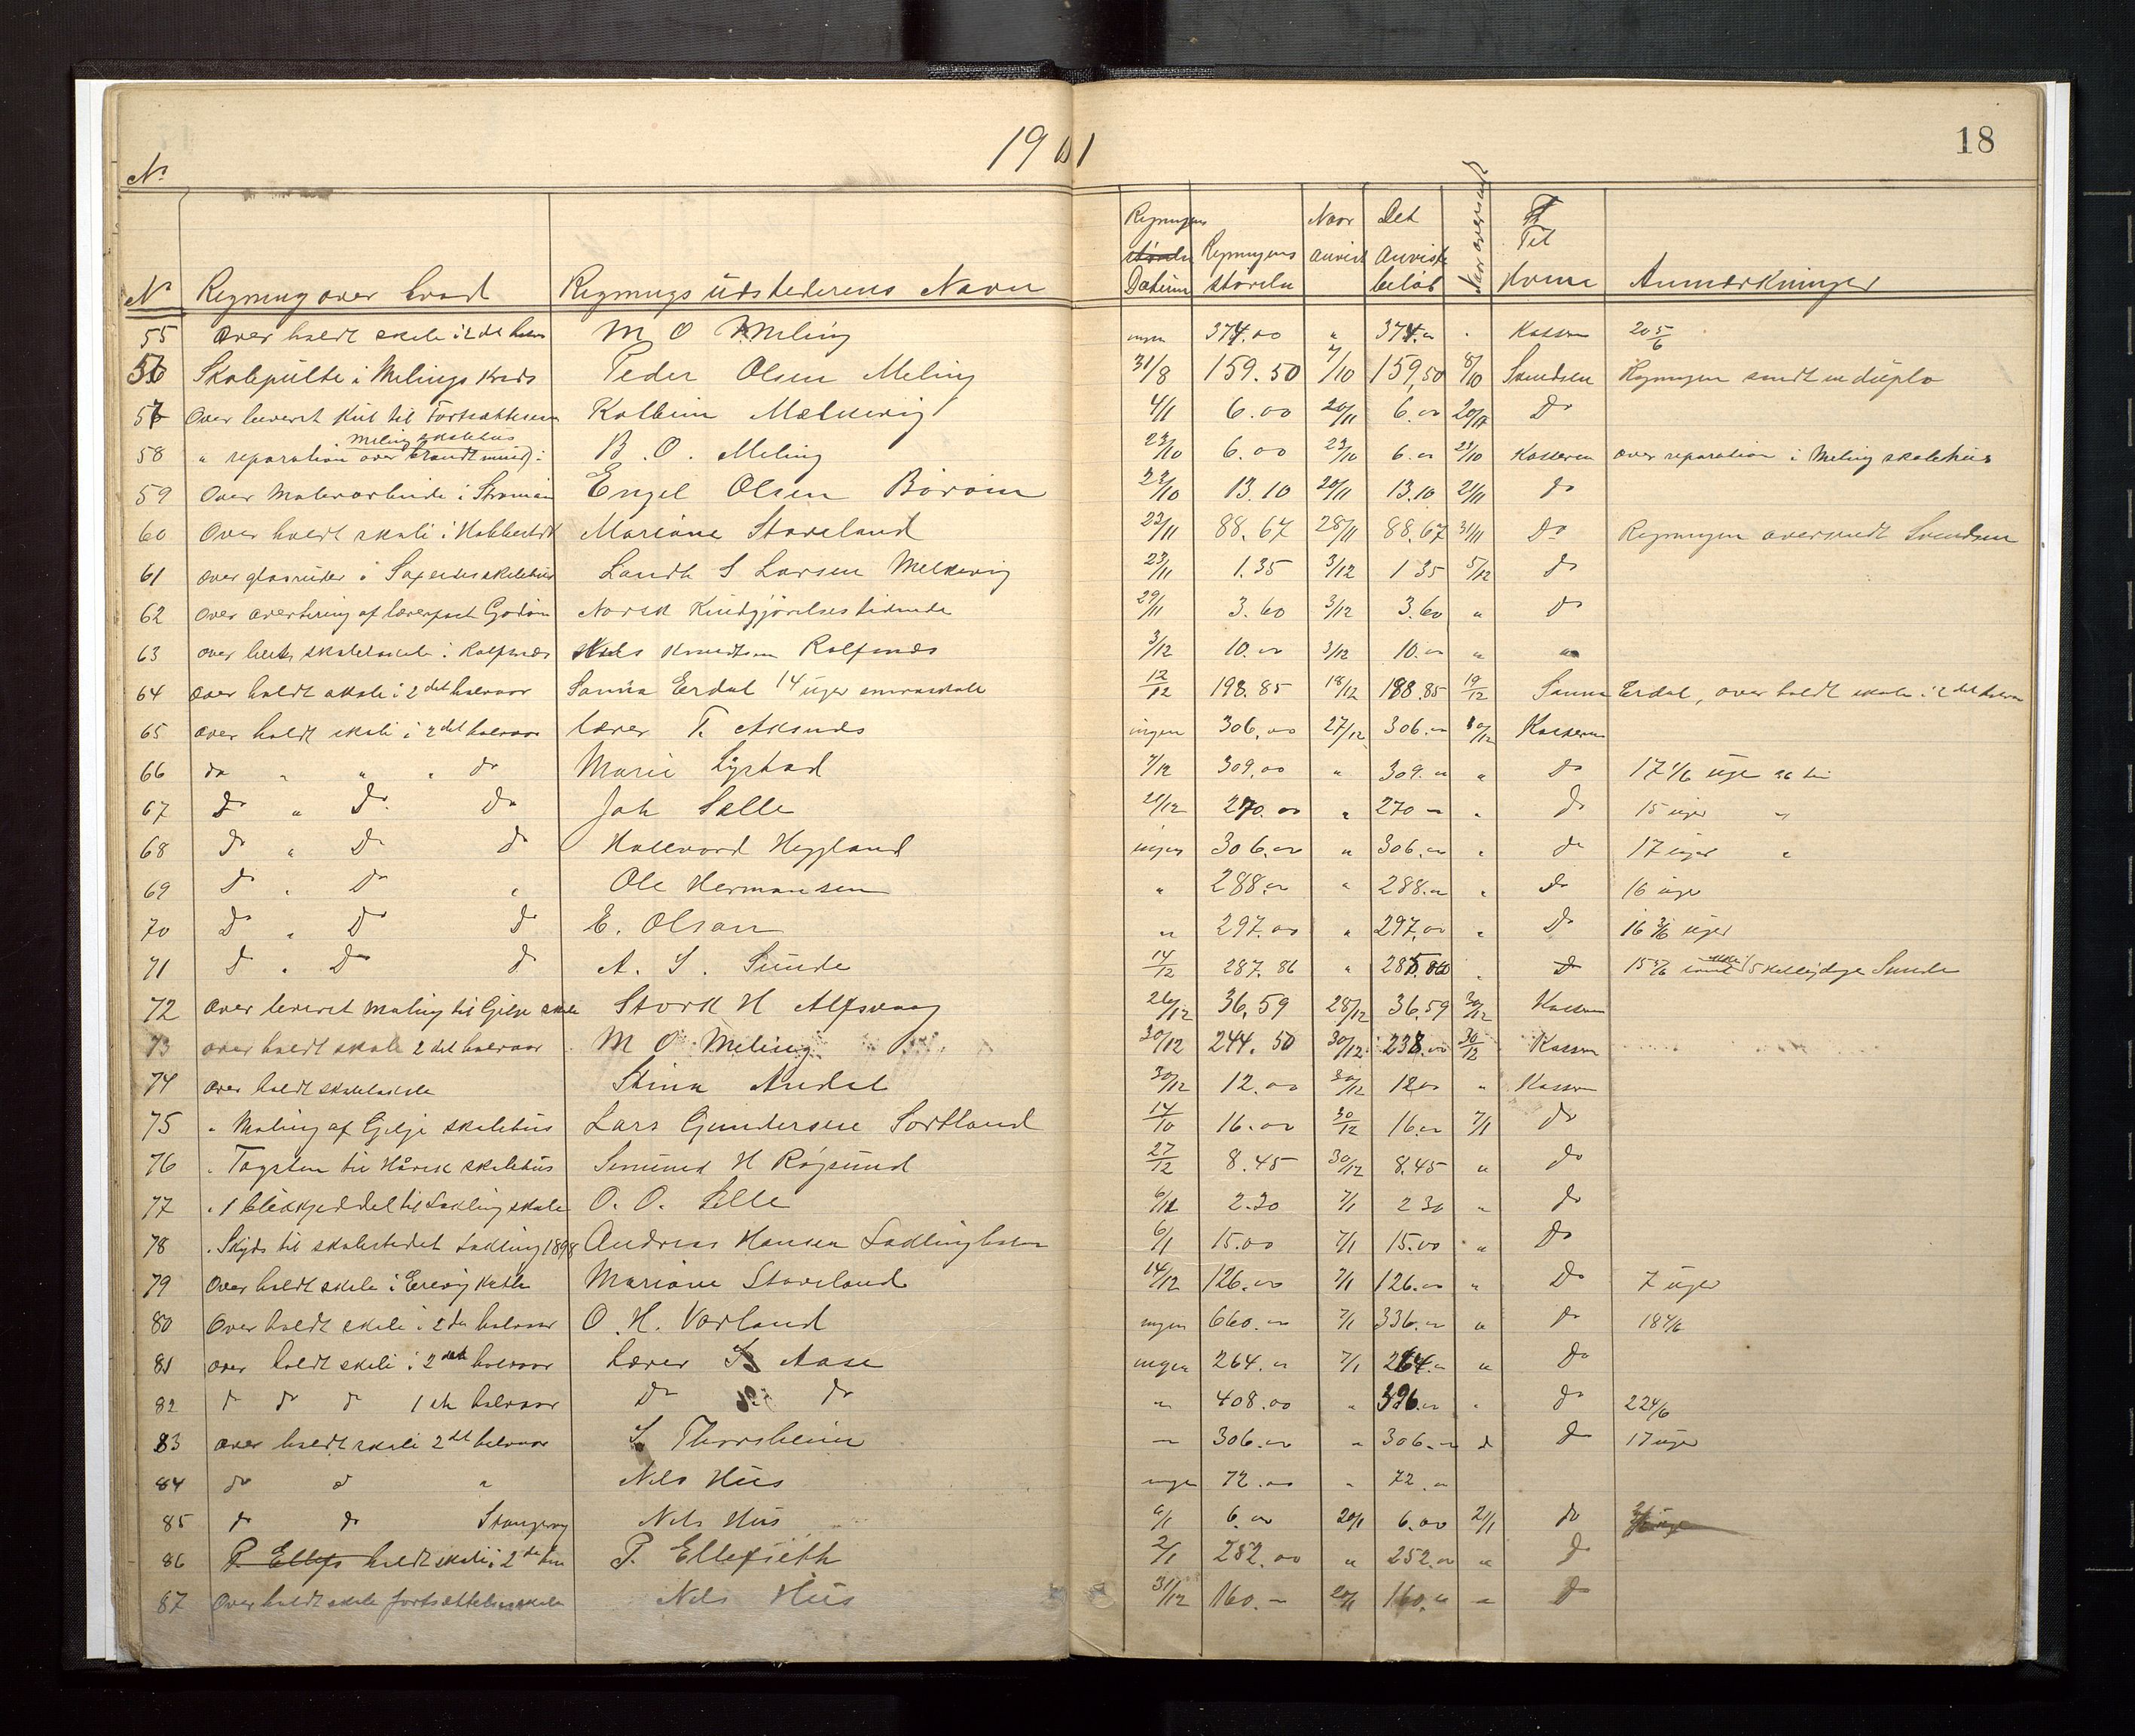 1901
18
No
No Regning over hvad Regnings udstederens Navn Regningens Datum Regningens störelse Naar anvist Det anviste beløb Naar oversendt Til hvem Anmærkninger
55 Over holdt skole i 2det halv M O Meling ingen 374.00 " 374.00 Kassren 20 5/6
56 Skolepulte i Melings Kreds Peder Olsen Meling 31/8 159.50 7/10 159,50 8/10 Svendsen Regningen sendt in duplo
57 Over leveret Kul til Fortsættelsen Kolbein Mælkevig 4/11 6.00 20/11 6.00 20/11 Do
58 " reparation over Meling skolehus B. O. Meling 23/10 6.00 23/10 6.00 23/10 Kasseren over reparation i Meling skolehus
59 Over Malerarbeide i Engel Olsen Böröen 23/10 13.10 20/11 13.10 21/11 do
60 Over holdt skole i Mariane Stoveland 22/11 88.67 28/11 88.67 31/11 Do Regningen oversendt Svendsen
61 over glasruder i skolehus Landh S Larsen Melkevig 23/11 1.35 3/12 1 35 5/12 do
62 Over avertering af lærerpost Norsk Kundgjörelsestidende 29/11 3.60 3/12 3.60 " do
63 over skolelokale i Rolfsnes Knudsen Rolfsnes 3/12 10.00 3/12 10.00 " "
64 over holdt skole i 2det halvaar Sanna Erdal 14 uger smaaskole 12/12 198.85 18/12 188.85 19/12 Sanna Erdal, over holdt skole i 2det halvaar
65 over holdt skole i 2det halvaar lærer T. Aksnes ingen 306,00 27/12 306.00 30/12 Kasseren
66 do " " " do Marie Lystad 7/12 309,00 " 309.00 " Do 17 1/6 uge
67 do " Do. Do Joh Selle 21/12 270.00 " 270 " do 15 uger "
68 do " Do do Hallvard Hegland ingen 306.00 " 306.00 " do 17 uger "
69 do " Do " Ole Hermansen " 288.00 " 288.00 " do 16 uger
70 do " Do do E. Olsen " 297.00 " 297.00 " Do 16 3/6 uger
71 do " Do do A. S. Sunde 14/12 287.86 " 285.00 " do 15 5/6 Sunde
72 over leveret maling til Gilje skole Stork H Alfsvaag 26/12 36,59 28/12 36.59 30/12 Kassren
73 over holdt skole 2det halvaar M O Meling 30/12 244.50 30/12 238.00 30/12 Kassren
74 over holdt skolelokale Stina Årdal 30/12 12.00 30/12 12.00 " Kassren
75 " Maling af Gilje skolehus Lars Gundersen Sortland 14/10 16.00 30/12 16.00 7/1 do
76 " Tagsten til Håvik skolehus Simund H Röysund 27/12 8.45 30/12 8.45 " do
77 " 1 blikkjeddel til Ladling skole O. O. Selle 6/12 2.30 7/1 2 30 " do
78 " Skyds til skolestedet Ladling 1898 Andreas Hansen 6/1 15.00 7/1 15.00 " Do
79 Over holdt skole i Mariane Stoveland 14/12 126.00 7/1 126.00 " Do 7 uger
80 Over holdt skole i 2det halvaar O. H. Vorland ingen 660.00 7/1 336.00 " do 18 4/6
81 over holdt skole i 2det halvaar Lærer S Aase ingen 264.00 7/1 264.00 " do
82 do do do 1ste halvaar Do S do " 408.00 " 396.00 " do 22 4/6
83 over holdt skole 2det halvaar S Thorsheim " 306.00 " 306.00 d do 17 uger
84 do d " Nils Hus ingen 72.00 " 72.00
85 do do Nils Hus 6/1 6.00 20/1 6.00 21/1 do
86 P. Ellefs holdt skole i 2det halv P. Ellefseth 2/1 252.00 " 252.00 " do
87 Over holdt skole fortsættelsesskole Nils Hus 31/12 160.- 20/1 160.00 " do